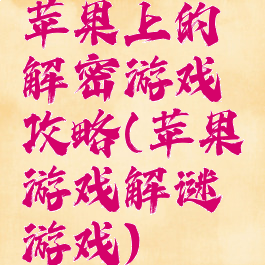 苹果上的
解密游戏
攻略(苹果
游戏解谜
游戏)